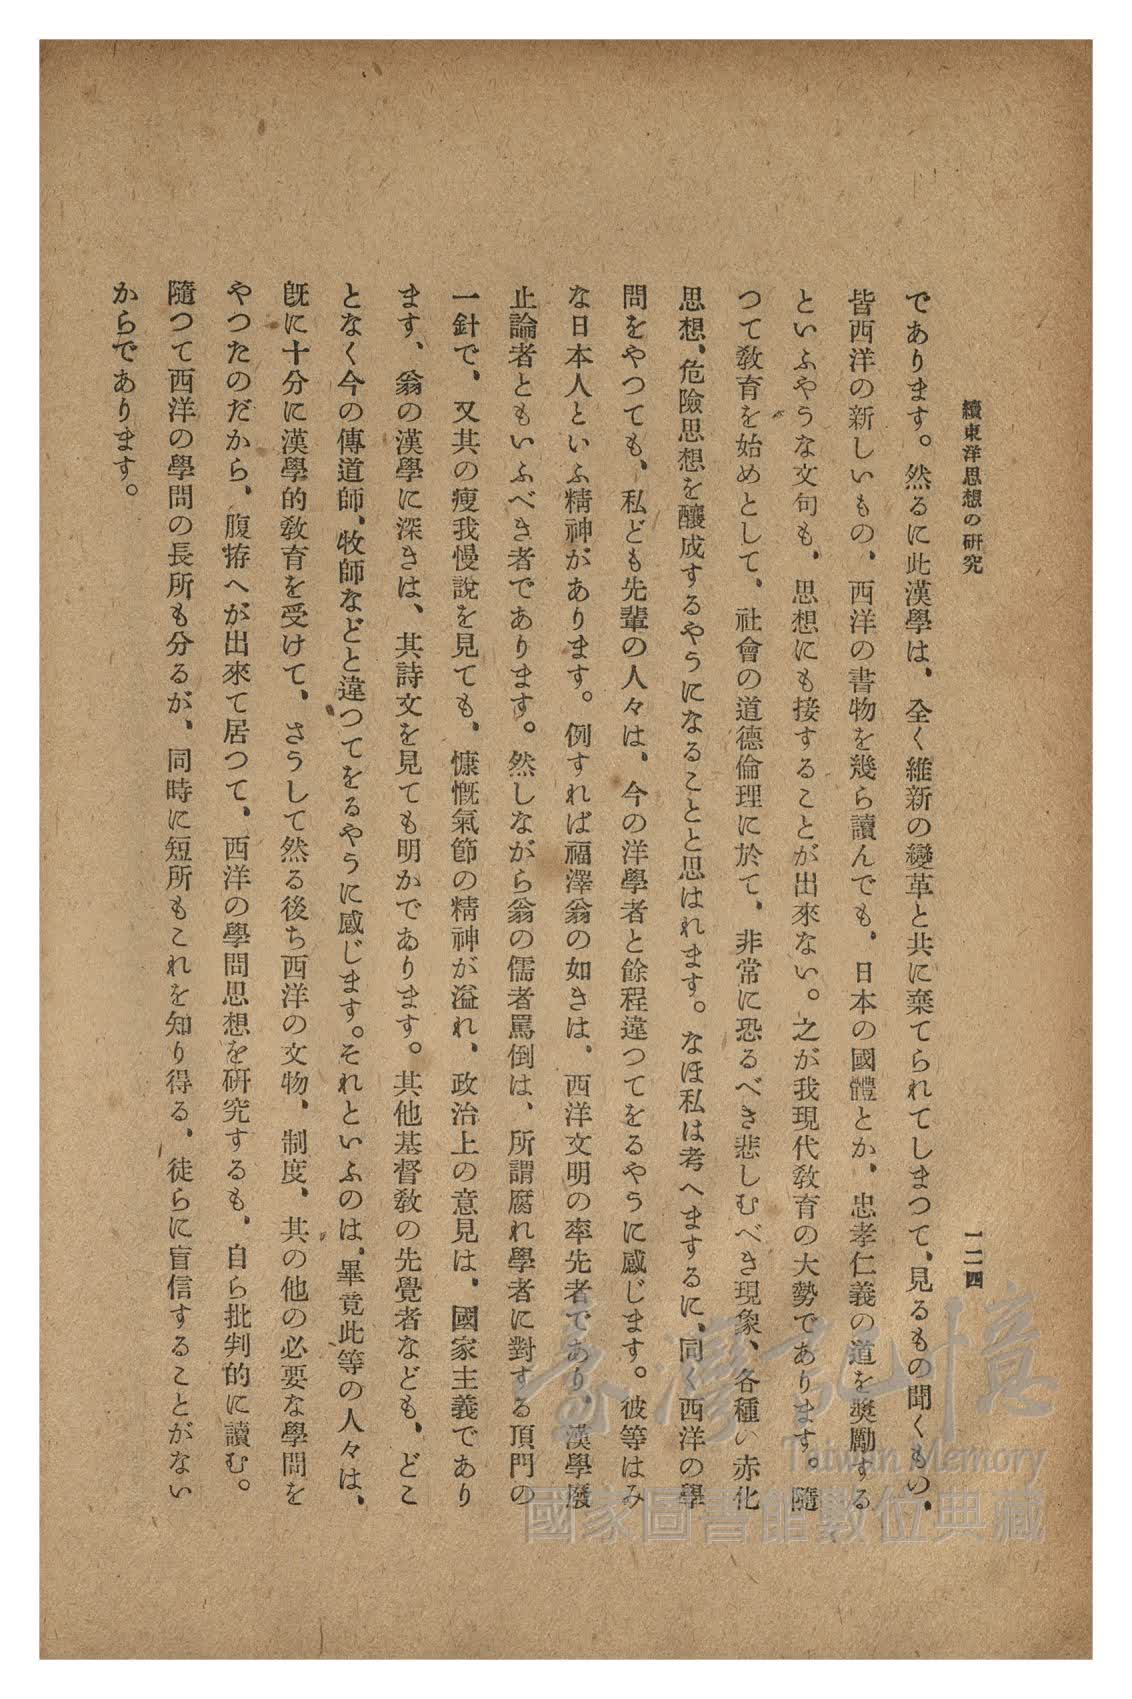 續東洋思想の研究
一二四
であります。然るに此漢學は、全く維新の變革と共に棄てられてしまつて、見るもの聞くもの、
皆西洋の新しいもの、西洋の書物を幾ら讀んでも、日本の國體とか、忠孝仁義の道を奬勵する
といふやうな文句も、思想にも接することが出來ない。之が我現代敎育の大勢であります。隨
つて敎育を始めとして、社會の道德倫理に於て、非常に恐るべき悲しむべき現象、各種の赤化
思想、危險思想を釀成するやうになることと思はれます。なほ私は考へまするに、同く西洋の學
問をやつても、私ども先輩の人々は、今の洋學者と餘程違つてをるやうに感じます。彼等はみ
な日本人といふ精神があります。例すれば福澤翁の如きは、西洋文明の率先者であり、漢學廢
止論者ともいふべき者であります。然しながら翁の儒者罵倒は、所謂腐れ學者に對する頂門の
一針で、又其の瘦我慢說を見ても、慷慨氣節の精神が溢れ、政治上の意見は、國家主義であり
ます、翁の漢學に深きは、其詩文を見ても明かであります。其他基督敎の先覺者なども、どこ
となく今の傳道師、牧師などと違つてをるやうに感じます。それといふのは、畢竟此等の人々は、
旣に十分に漢學的敎育を受けて、さうして然る後ち西洋の文物、制度、其の他の必要な學問を
やつたのだから、腹拵へが出來て居つて、西洋の學問思想を硏究するも、自ら批判的に讀む。
隨つて西洋の學問の長所も分るが、同時に短所もこれを知り得る、徒らに盲信することがない
からであります。
臺灣記憶
Taiwan Memory
國家圖書館數位典藏